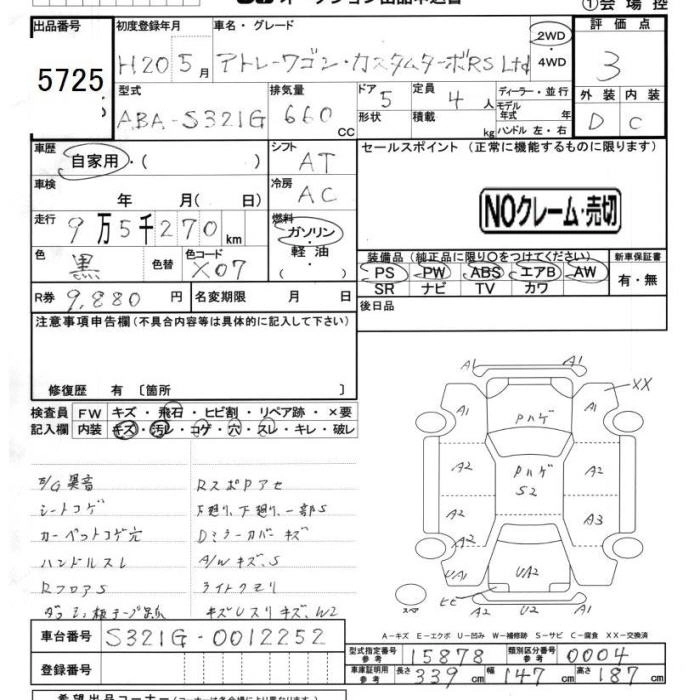 オークション出品申込書
①会場控
出品番号
5725
初度登録年月
H20 5月
車名・グレード
アトレーワゴン・カスタムターボRS Ltd
2WD
・
4WD
評価点
3
型式
ABA-S321G
排気量
660 cc
ドア
5
形状
定員
4 人
積載
kg
ディーラー・並行
モデル年式 年
ハンドル 左・右
外装 内装
D C
車歴
自家用・( )
シフト
AT
車検
年 月( 日)
冷房
AC
走行
9万5千270km
燃料
ガソリン
・
軽油
( )
色
黒
色替
色コード
X07
R券 9,880 円
名変期限 月 日
セールスポイント (正常に機能するものに限ります)
NOクレーム・売切
装備品 (純正品に限り○をつけてください)
PS PW ABS エアB AW
SR ナビ TV カワ
新車保証書
有・無
後日品
注意事項申告欄 (不具合内容等は具体的に記入して下さい)
修復歴 有 〔箇所 〕
検査員 FW キズ・飛石・ヒビ割・リペア跡・×要
記入欄 内装 キズ・汚レ・コゲ・穴・スレ・キレ・破レ
E/G異音
シートコゲ
カーペットコゲ穴
ハンドルスレ
RフロアS
RスポPアセ
下廻り、一部S
Dミラーカバーキズ
A/Wキズ、S
ライトクモリ
キズUスリキズ、W2
A1 A1
XX
A1 A1
Pハゲ
A2 A2
Pハゲ
S2
A2 A3
UA1 UA2 A2
ヒビ
A2 U2 U2
スペア
A-キズ E-エクボ U-凹み W-補修跡 S-サビ C-腐食 XX-交換済
車台番号 S321G-0012252
登録番号
型式指定番号 参考 15878
類別区分番号 参考 0004
車庫証明用 参考 長さ 339cm 幅 147cm 高さ 187cm
希望出品コーナー